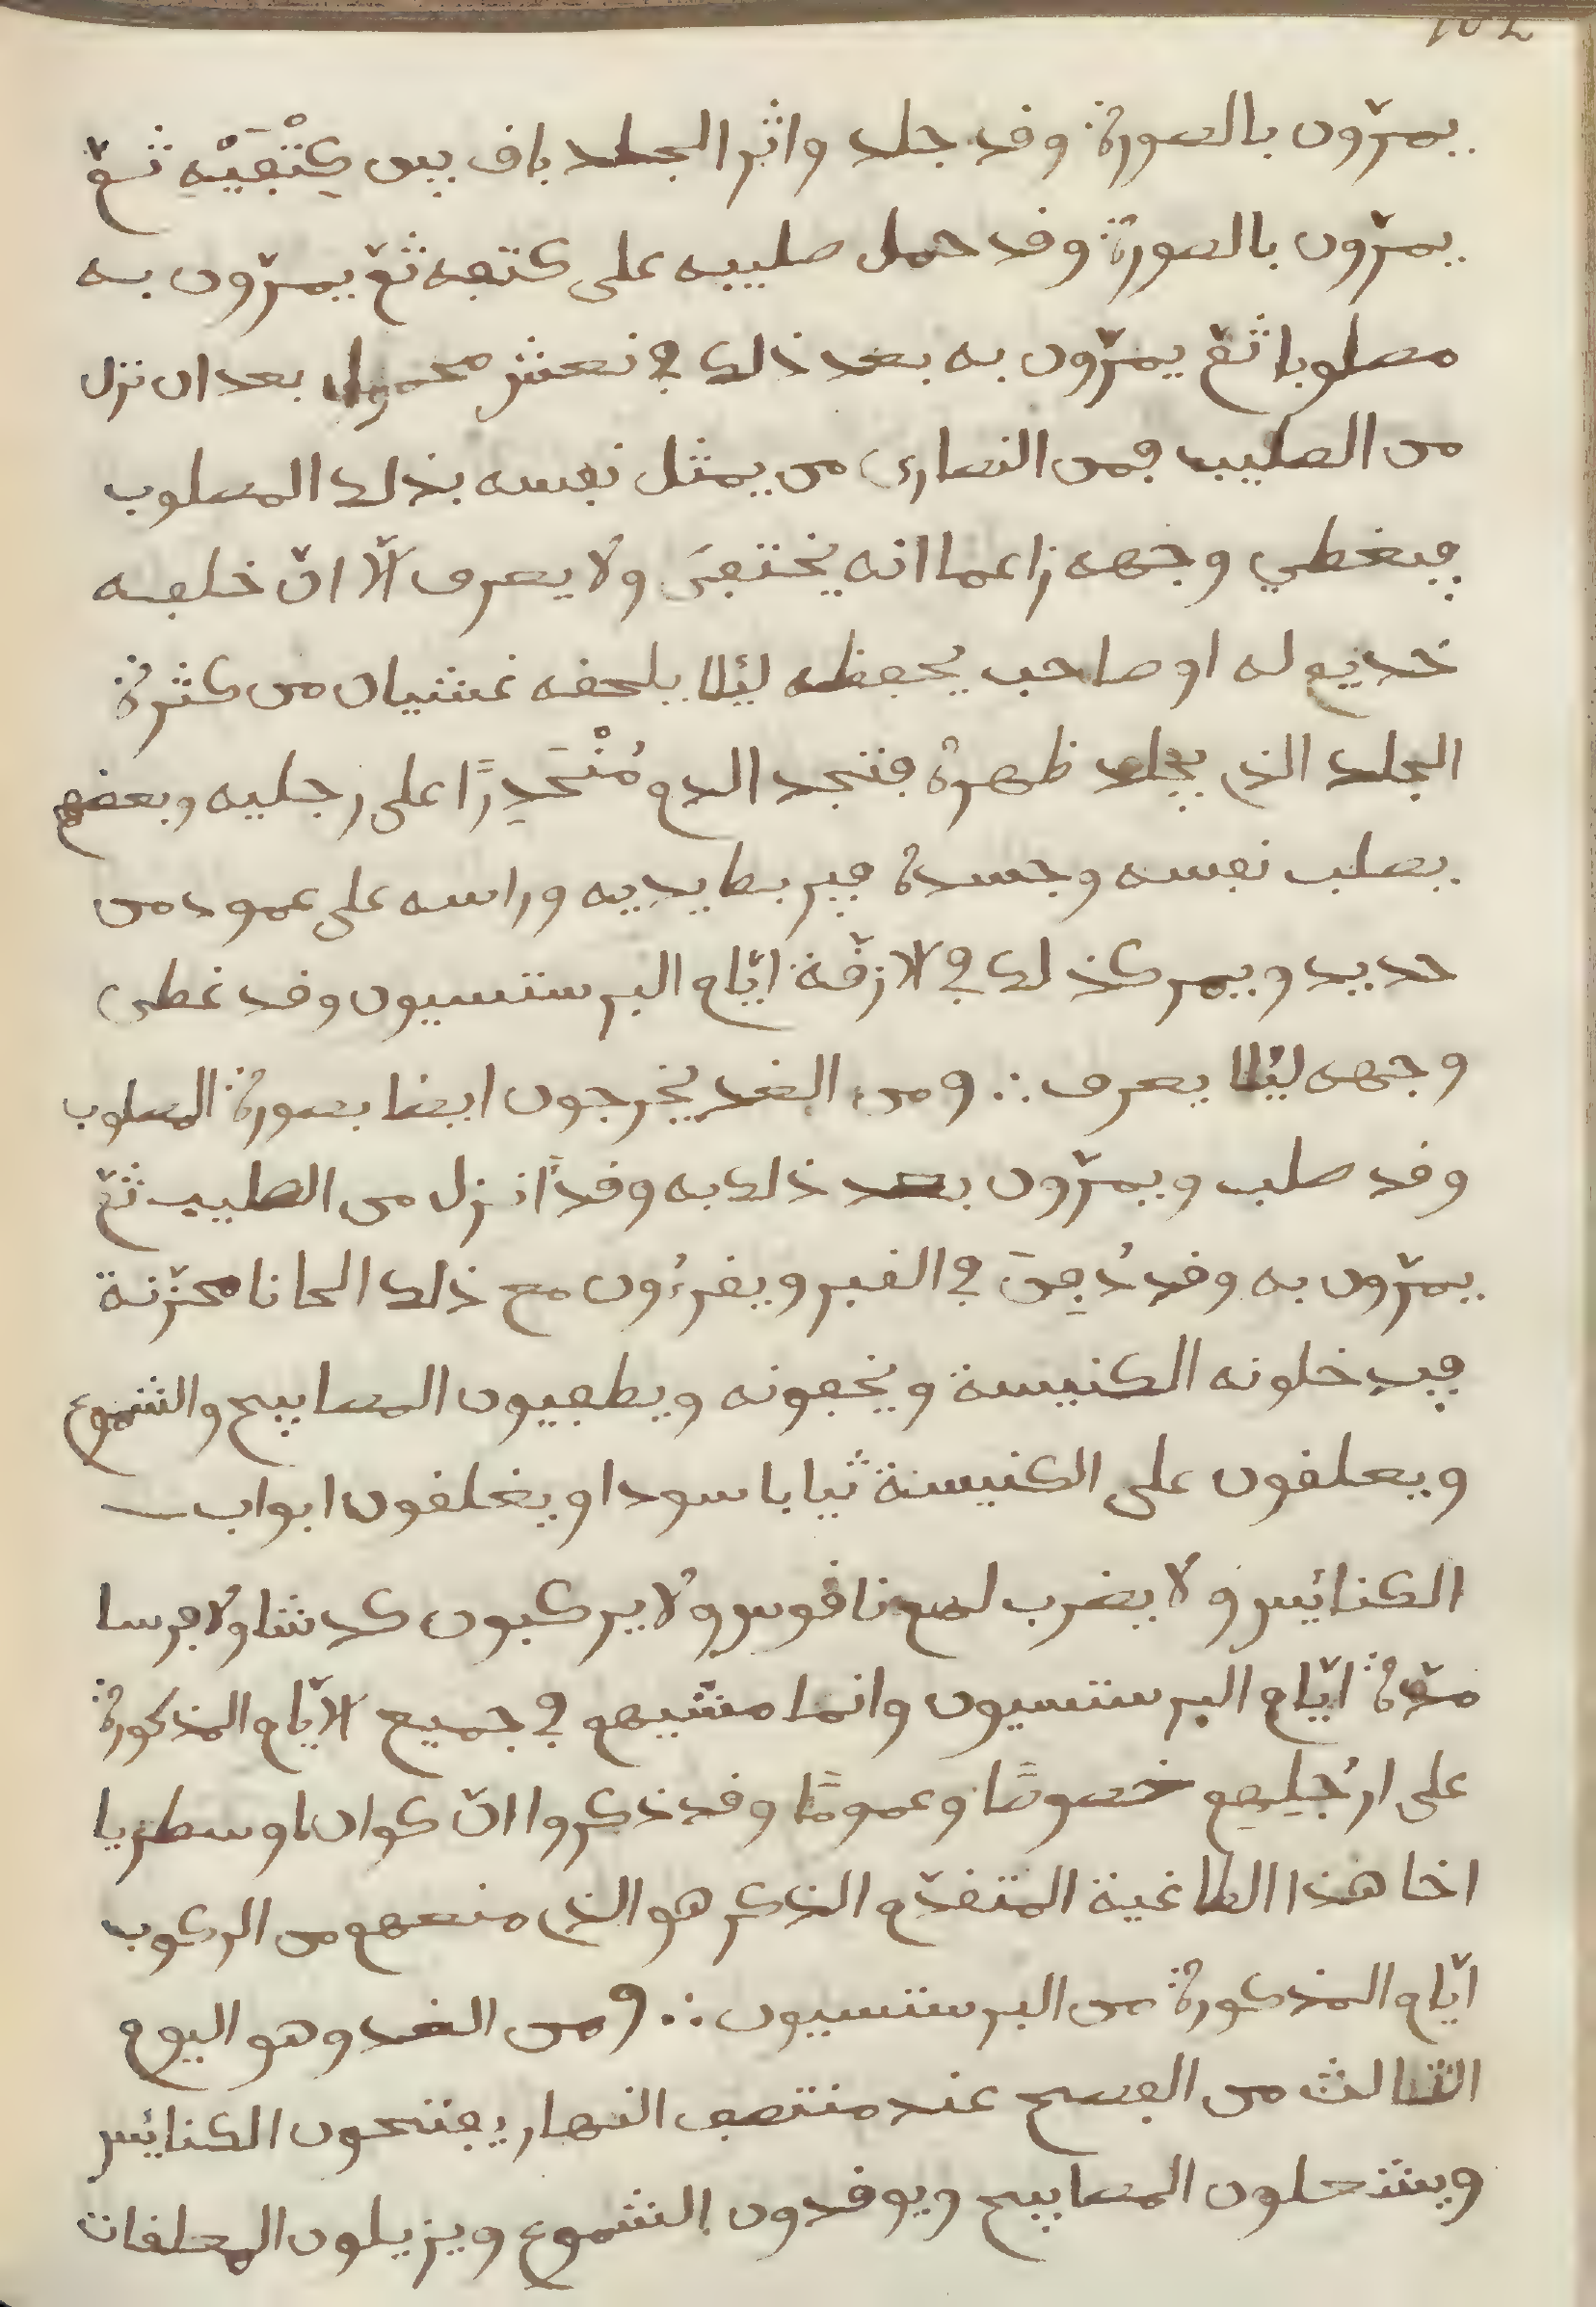 يمرّون بالصورة وقد جلد واثر الجلد باق بين كَتْفَيْه ثمّ
يمرّون بالصورة وقد حمل صليبه على كتفه ثمّ يمرّون به
مصلوبا ثمّ يمرّون به بعد ذلك في نعش محمول بعد ان نزل
من الصليب فمن النصارى من يمثل نفسه بذلك المصلوب
فيغطي وجهه زاعما انه يختفىَ ولا يعرف الّا انّ خلفه
خديم له او صاحب يحفظه لئلا يلحقه غشيان من كثرة
الجلد الذي يجلد ظهره فتجد الدم مُنْحَدِرًا على رجليه وبعضهم
يصلب نفسه وجسده فيربط يديه وراسه على عمود من
حديد ويمر كذلك في الازقّة ايّام البرستسيون وقد غطى
وجهه لئلا يعرف ∴ ومن الغد يخرجون ايضا بصورة المصلوب
وقد صلب ويمرّون بعد ذلك به وقد اُنزل من الصليب ثمّ
يمرّون به وقد دُفِنَ في القبر ويقرءُون مع ذلك الحانا محزنة
فيدخلونه الكنيسة ويخفونه ويطفيون المصابيح والشموع
ويعلقون على الكنيسة ثيابا سودا ويغلقون ابواب
الكنائيس ولا يضرب لهم ناقوس ولا يركبون كدشا ولا فرسا
مدّة ايّام البرستسيون وانما مشيهم في جميع الايّام المذكورة
على ارجُلِهِم خصوصًا وعمومًا وقد ذكروا انّ كوان اوسطريا
اخا هذا الطاغية المتقدّم الذكر هو الذي منعهم من الركوب
ايّام المذكورة من البرستسيون ∴ ومن الغد وهو اليوم
الثالث من الفسح عند منتصف النهار يفتحون الكنائيس
ويشعلون المصابيح ويوقدون الشموع ويزيلون المعلقات